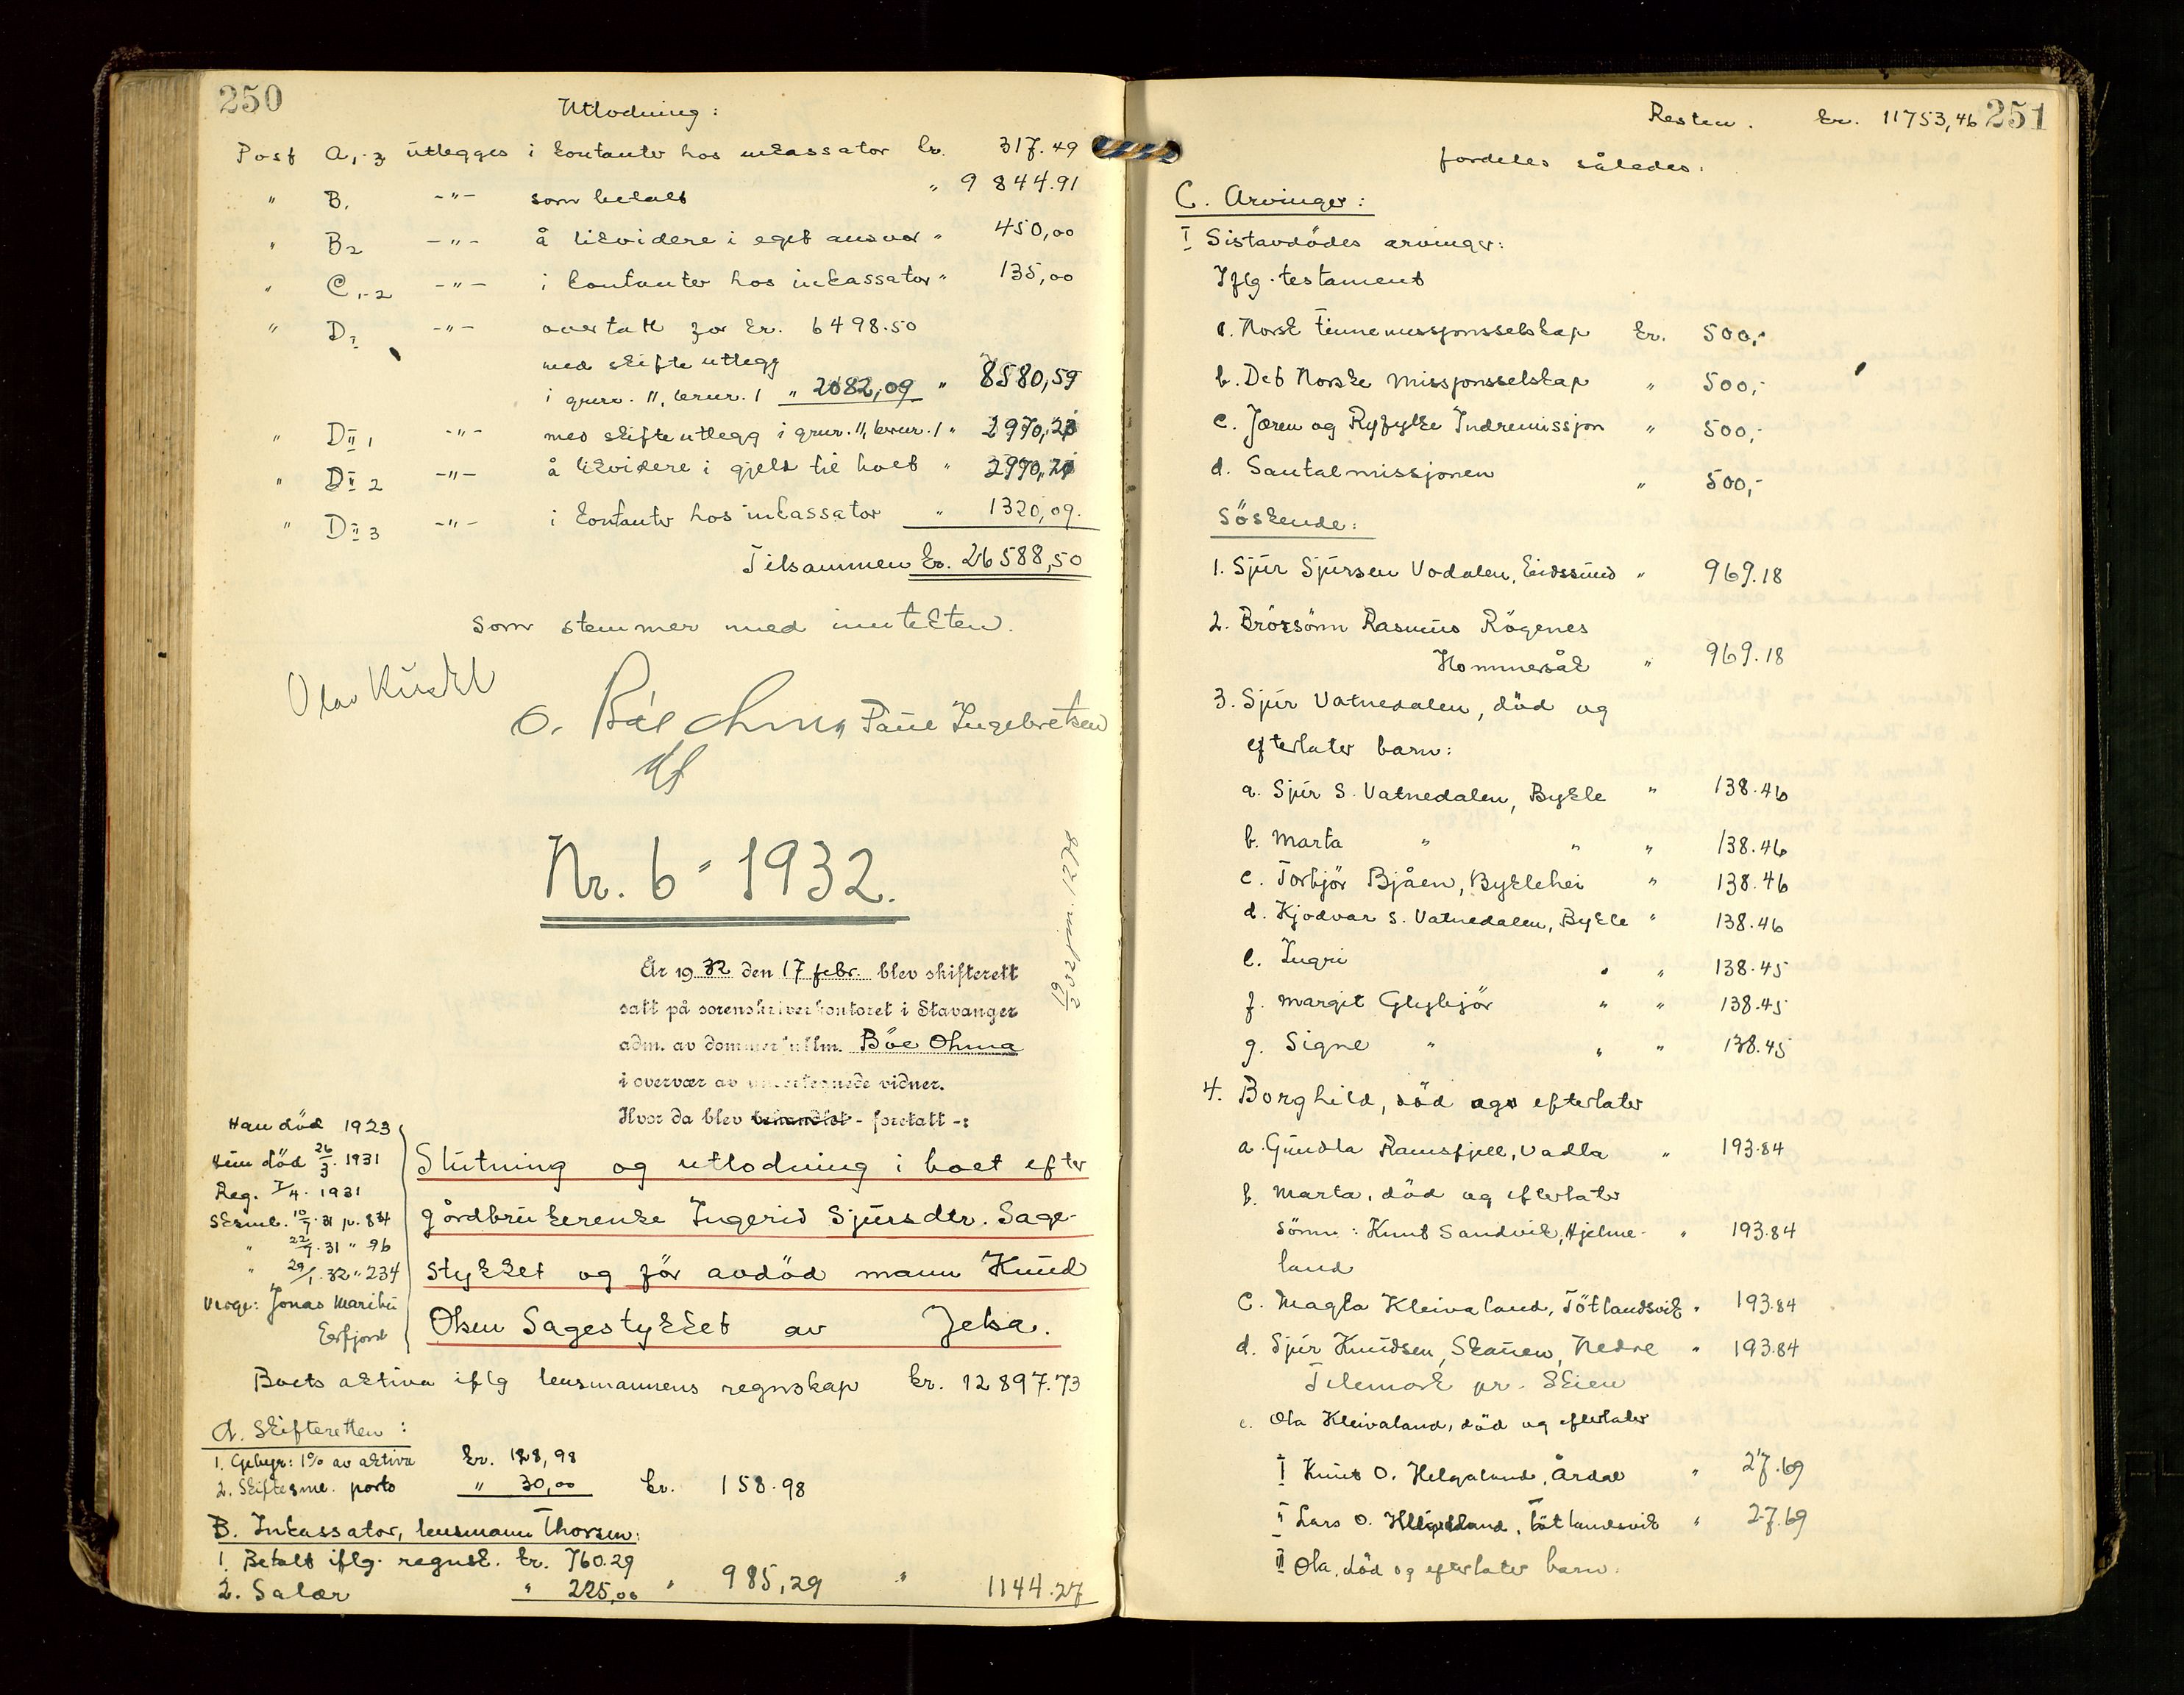 250
Utlodning:
Post A,1-3 utlegges i kontanter hos inkassator kr. 317.49
" B1 -"- som betalt " 9 844.91
" B2 -"- å likvidere i eget ansvar " 450,00
" C1-2 -"- i kontanter hos inkassator " 135,00
" D1 -"- overtatt for kr. 6498.50
med skifteutlegg
i grnr. 11, brnr. 1 " 2082,09 " 8580,59
" DII 1 -"- med skifteutlegg i grnr. 11, brnr. 1 "
" DII 2 -"- å likvidere i gjeld til boet "
" DII 3 -"- i kontanter hos inkassator " 1320,09.
Tilsammen kr. 26588,50
som stemmer med inntekten.
Olav
O. Bøe Ohma Paul Ingebretsen
df
Nr. 6 - 1932.
År 1932 den 17 febr. blev skifterett
satt på sorenskriverkontoret i Stavanger
adm. av dommerfullm. Böe Ohma
i overvær av undertegnede vidner.
Hvor da blev behandlet - foretatt -:
19/2 32 jnr. 1278
Han död 1923
Hun död 26/3. 1931
Reg. 7/4. 1931
Sksml. 10/7. 31 p. 834
" 22/9. 31 " 96
" 29/1. 32 " 234
Verge: Jonas Maribu
Erfjord
Slutning og utlodning i boet efter
gårdbrukerenke Ingerid Sjursdtr. Sage-
stykket og för avdöd mann Knud
Olsen Sagestykket av Jelsa.
Boets aktiva iflg lensmannens regnskap kr. 12897.73
A. Skifteretten:
1. Gebyr: 1% av aktiva kr. 128,98
2. Skiftesml. porto " 30,00 kr. 158.98
B. Inkassator, lensmann Thorsen:
1. Betalt iflg. regnsk. kr. 760.29
2. Salær " 225,00 " 985,29 " 1144.27
251
Resten. kr. 11753,46
fordeles således:
C. Arvinger:
I Sistavdödes arvinger:
Iflg. testament
a. Norsk Finnemissjonsselskap kr. 500,-
b. Det Norske Missjonsselskap " 500,-
c. Jæren og Ryfylke Indremissjon " 500,-
d. Santalmissjonen " 500,-
Söskende:
1. Sjur Sjursen Vadalen, Eidssund " 969.18
2. Brorsönn Rasmus Rögenes
Hommersåk " 969.18
3. Sjur Vatnedalen, död og
efterlater barn:
a. Sjur S. Vatnedalen, Bykle " 138.46
b. Marta " " " 138.46
c. Torbjör Bjåen, Byklehei " 138.46
d. Kjodvar S. Vatnedalen, Bykle " 138.46
e. Ingri " " 138.45
f. Margit Glybjör " " 138.45
g. Signe " " " 138.45
4. Borghild, död og efterlater
a. Gundla Ramsfjell, Vadla " 193.84
b. Marta, död og efterlater
sönn: Knut Sandvik, Hjelme- " 193.84
land
c. Magla Kleivaland, Töttlandsvik " 193.84
d. Sjur Knudsen, Skauen, Nedre " 193.84
Telemark pr. Skien
e. Ola Kleivaland, död og efterlater
I Knut O. Helgaland, Årdal " 27.69
II Lars O. Helgaland, Töttlandsvik " 27.69
III Ola, död og efterlater barn: